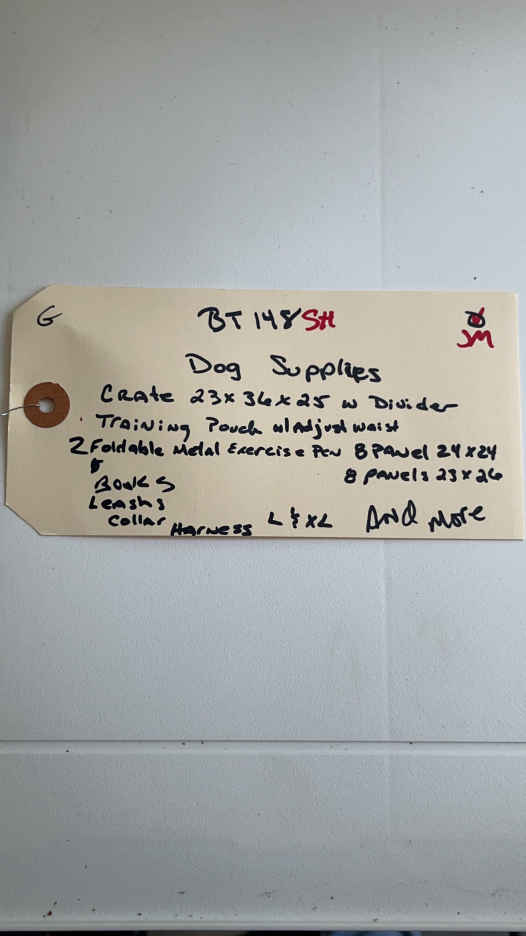 G
BT 148 SH
JM
Dog Supplies
Crate 23x36x25 w Divider
Training Pouch w/Adjust waist
2 Foldable Metal Exercise Pen 8 Panel 24x24
8 Panels 23x26
Books
Leashs
Collar
Harness L & XL And More